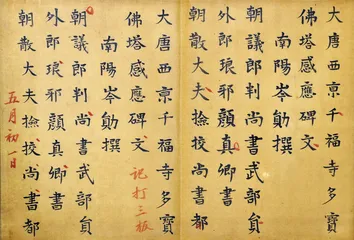 大唐西京千福寺多寶
佛塔感應碑文
南陽岑勛撰
朝議郎判尚書武部員
外郎琅邪顏真卿書
朝散大夫撿挍尚書都
大唐西京千福寺多寶
佛塔感應碑文
記打三板
南陽岑勛撰
朝議郎判尚書武部員
外郎琅邪顏真卿書
朝散大夫撿挍尚書都
五月初一日